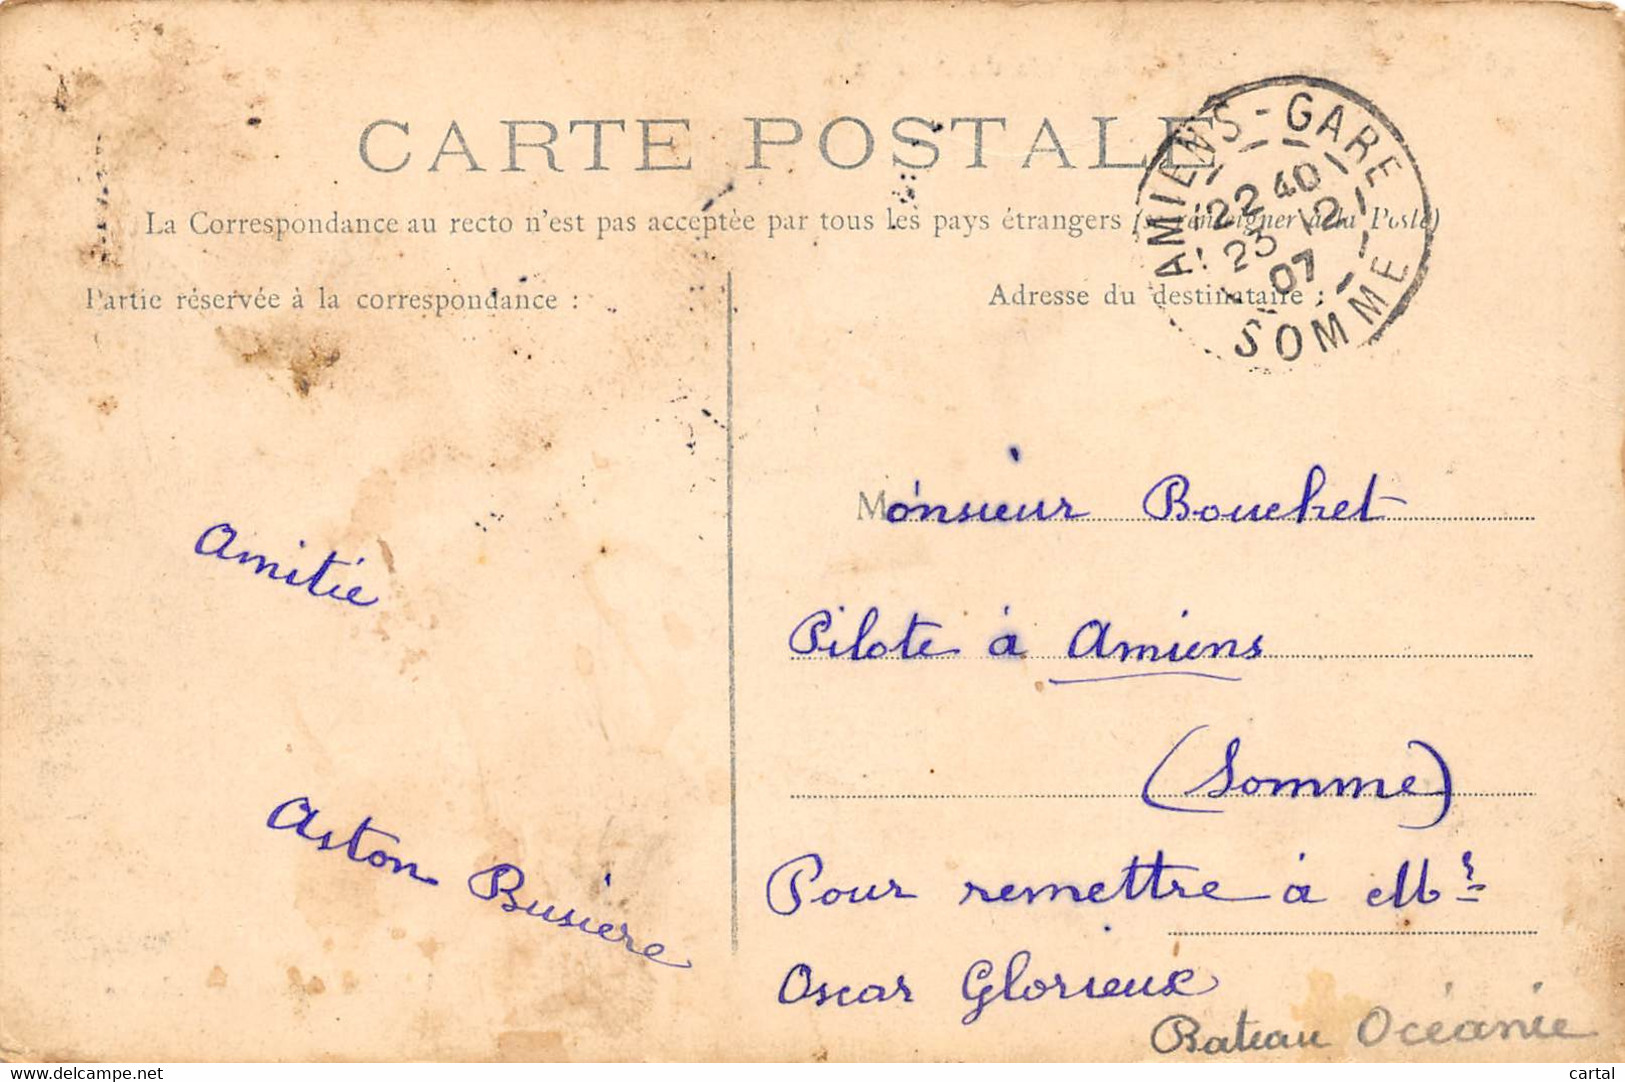 CARTE POSTALE
La Correspondance au recto n'est pas acceptée par tous les pays étrangers (se renseigner à la Poste)
Partie réservée à la correspondance :
Adresse du destinataire :
AMIENS-GARE
22 40
23 12
07
SOMME
Amitié
Aston Busiere
Monsieur Bouchet
Pilote à Amiens
(Somme)
Pour remettre à Mr
Oscar Glorieux
Bateau Océanie
https://www.delcampe.net
cartal